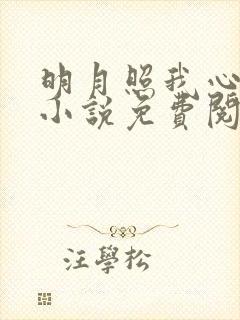 明月照我心
小說免費閱
汪學松